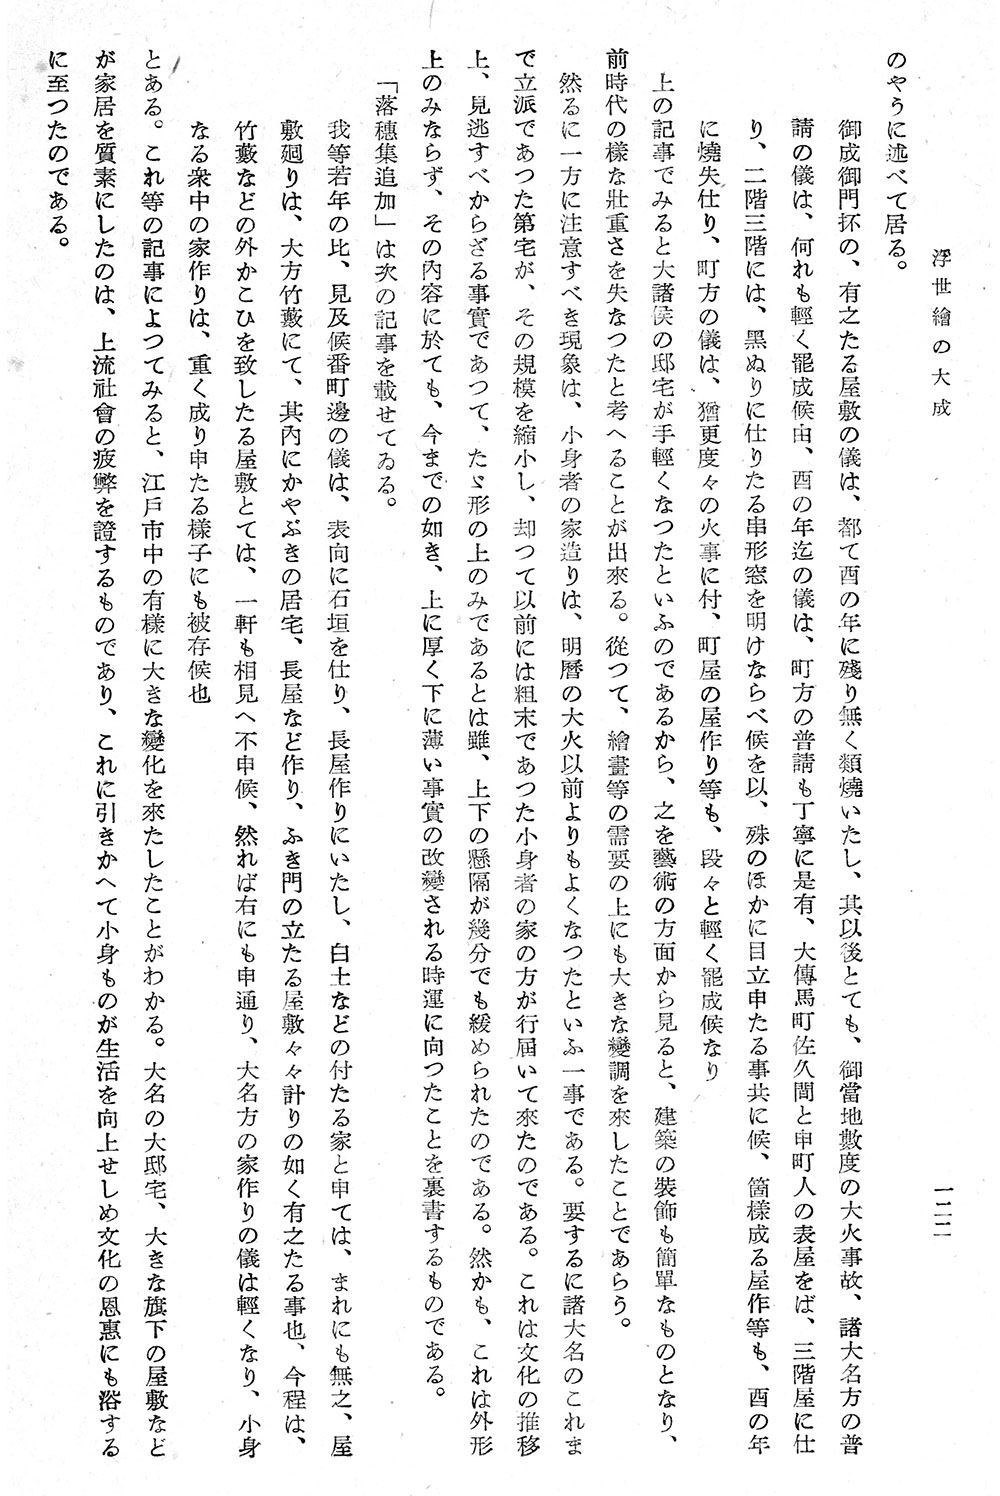 浮世繪の大成
一二二
のやうに述べて居る。
御成御門抔の、有之たる屋敷の儀は、都て酉の年に殘り無く類燒いたし、其以後とても、御當地敷度の大火事故、諸大名方の普
請の儀は、何れも輕く罷成候由、酉の年迄の儀は、町方の普請も丁寧に是有、大傳馬町佐久間と申町人の表屋をば、三階屋に仕
り、二階三階には、黑ぬりに仕りたる串形窓を明けならべ候を以、殊のほかに目立申たる事共に候、箇樣成る屋作等も、酉の年
に燒失仕り、町方の儀は、猶更度々の火事に付、町屋の屋作り等も、段々と輕く罷成候なり
上の記事でみると大諸侯の邸宅が手輕くなつたといふのであるから、之を藝術の方面から見ると、建築の裝飾も簡單なものとなり、
前時代の樣な壯重さを失なつたと考へることが出來る。從つて、繪畫等の需要の上にも大きな變調を來したことであらう。
然るに一方に注意すべき現象は、小身者の家造りは、明曆の大火以前よりもよくなつたといふ一事である。要するに諸大名のこれま
で立派であつた第宅が、その規模を縮小し、却つて以前には粗末であつた小身者の家の方が行屆いて來たのである。これは文化の推移
上、見逃すべからざる事實であつて、たゞ形の上のみであるとは雖、上下の懸隔が幾分でも緩められたのである。然かも、これは外形
上のみならず、その內容に於ても、今までの如き、上に厚く下に薄い事實の改變される時運に向つたことを裏書するものである。
「落穗集追加」は次の記事を載せてゐる。
我等若年の比、見及候番町邊の儀は、表向に石垣を仕り、長屋作りにいたし、白土などの付たる家と申ては、まれにも無之、屋
敷廻りは、大方竹藪にて、其內にかやぶきの居宅、長屋など作り、ふき門の立たる屋敷々々計りの如く有之たる事也、今程は、
竹藪などの外かこひを致したる屋敷とては、一軒も相見へ不申候、然れば右にも申通り、大名方の家作りの儀は輕くなり、小身
なる衆中の家作りは、重く成り申たる樣子にも被存候也
とある。これ等の記事によつてみると、江戶市中の有樣に大きな變化を來たしたことがわかる。大名の大邸宅、大きな旗下の屋敷など
が家居を質素にしたのは、上流社會の疲弊を證するものであり、これに引きかへて小身ものが生活を向上せしめ文化の恩惠にも浴する
に至つたのである。